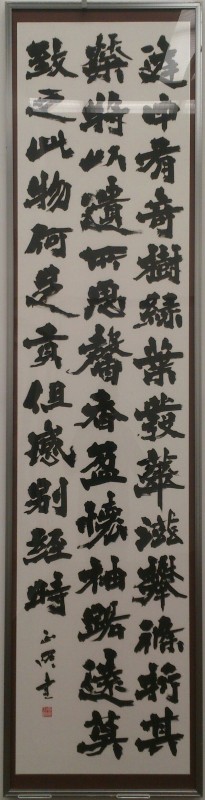 庭中有奇樹緑葉發華滋攀條折其
榮將以遺所思馨香盈懷袖路遠莫
致之此物何足貢但感別經時